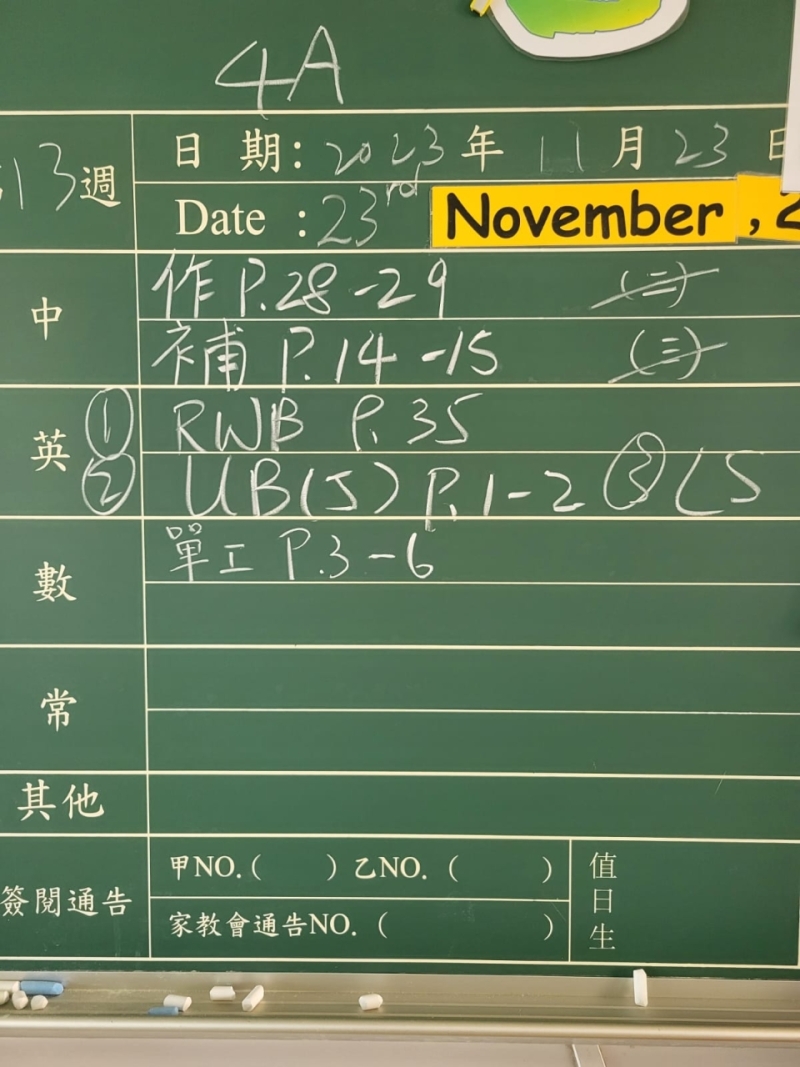 4A
13週
日 期: 2023 年 11 月 23 日
Date : 23rd November ,
中
作 P.28-29 (二)
補 P.14-15 (三)
英
① RWB P.35
② UB(5) P.1-2 ③ LS
數
單工 P.3-6
常
其他
簽閱通告
甲NO.( ) 乙NO. ( )
家教會通告NO. ( )
值日生